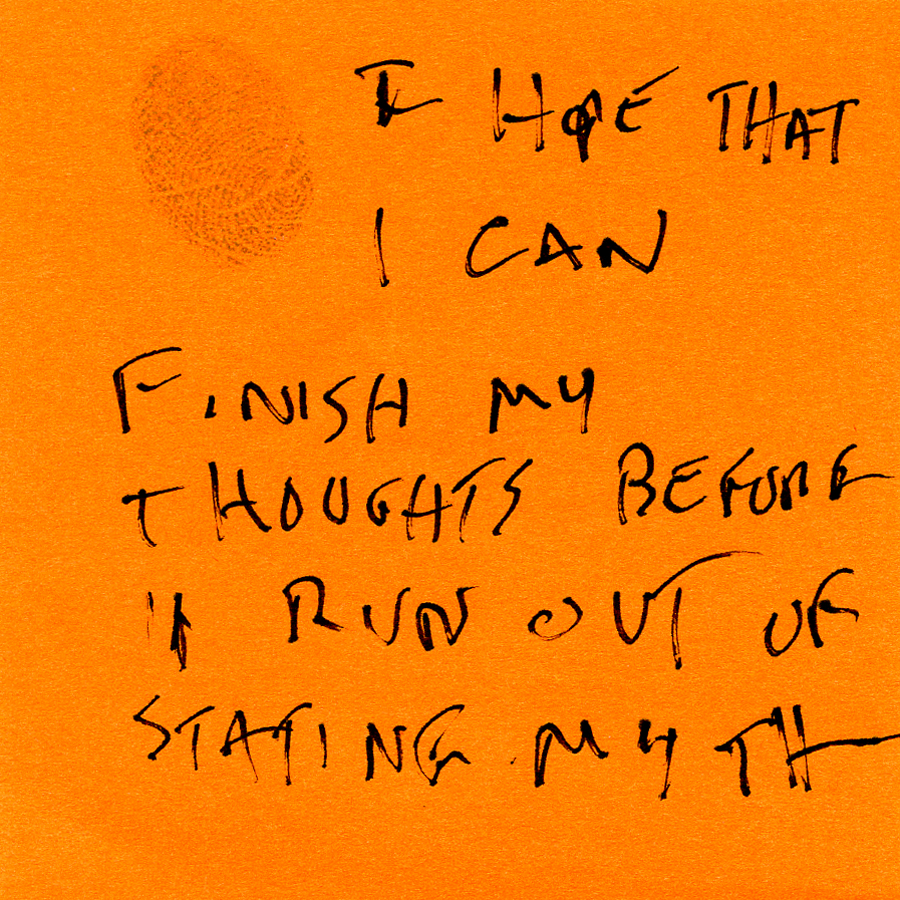 I HOPE THAT
I CAN
FINISH MY
THOUGHTS BEFORE
I RUN OUT OF
STATING MY TH